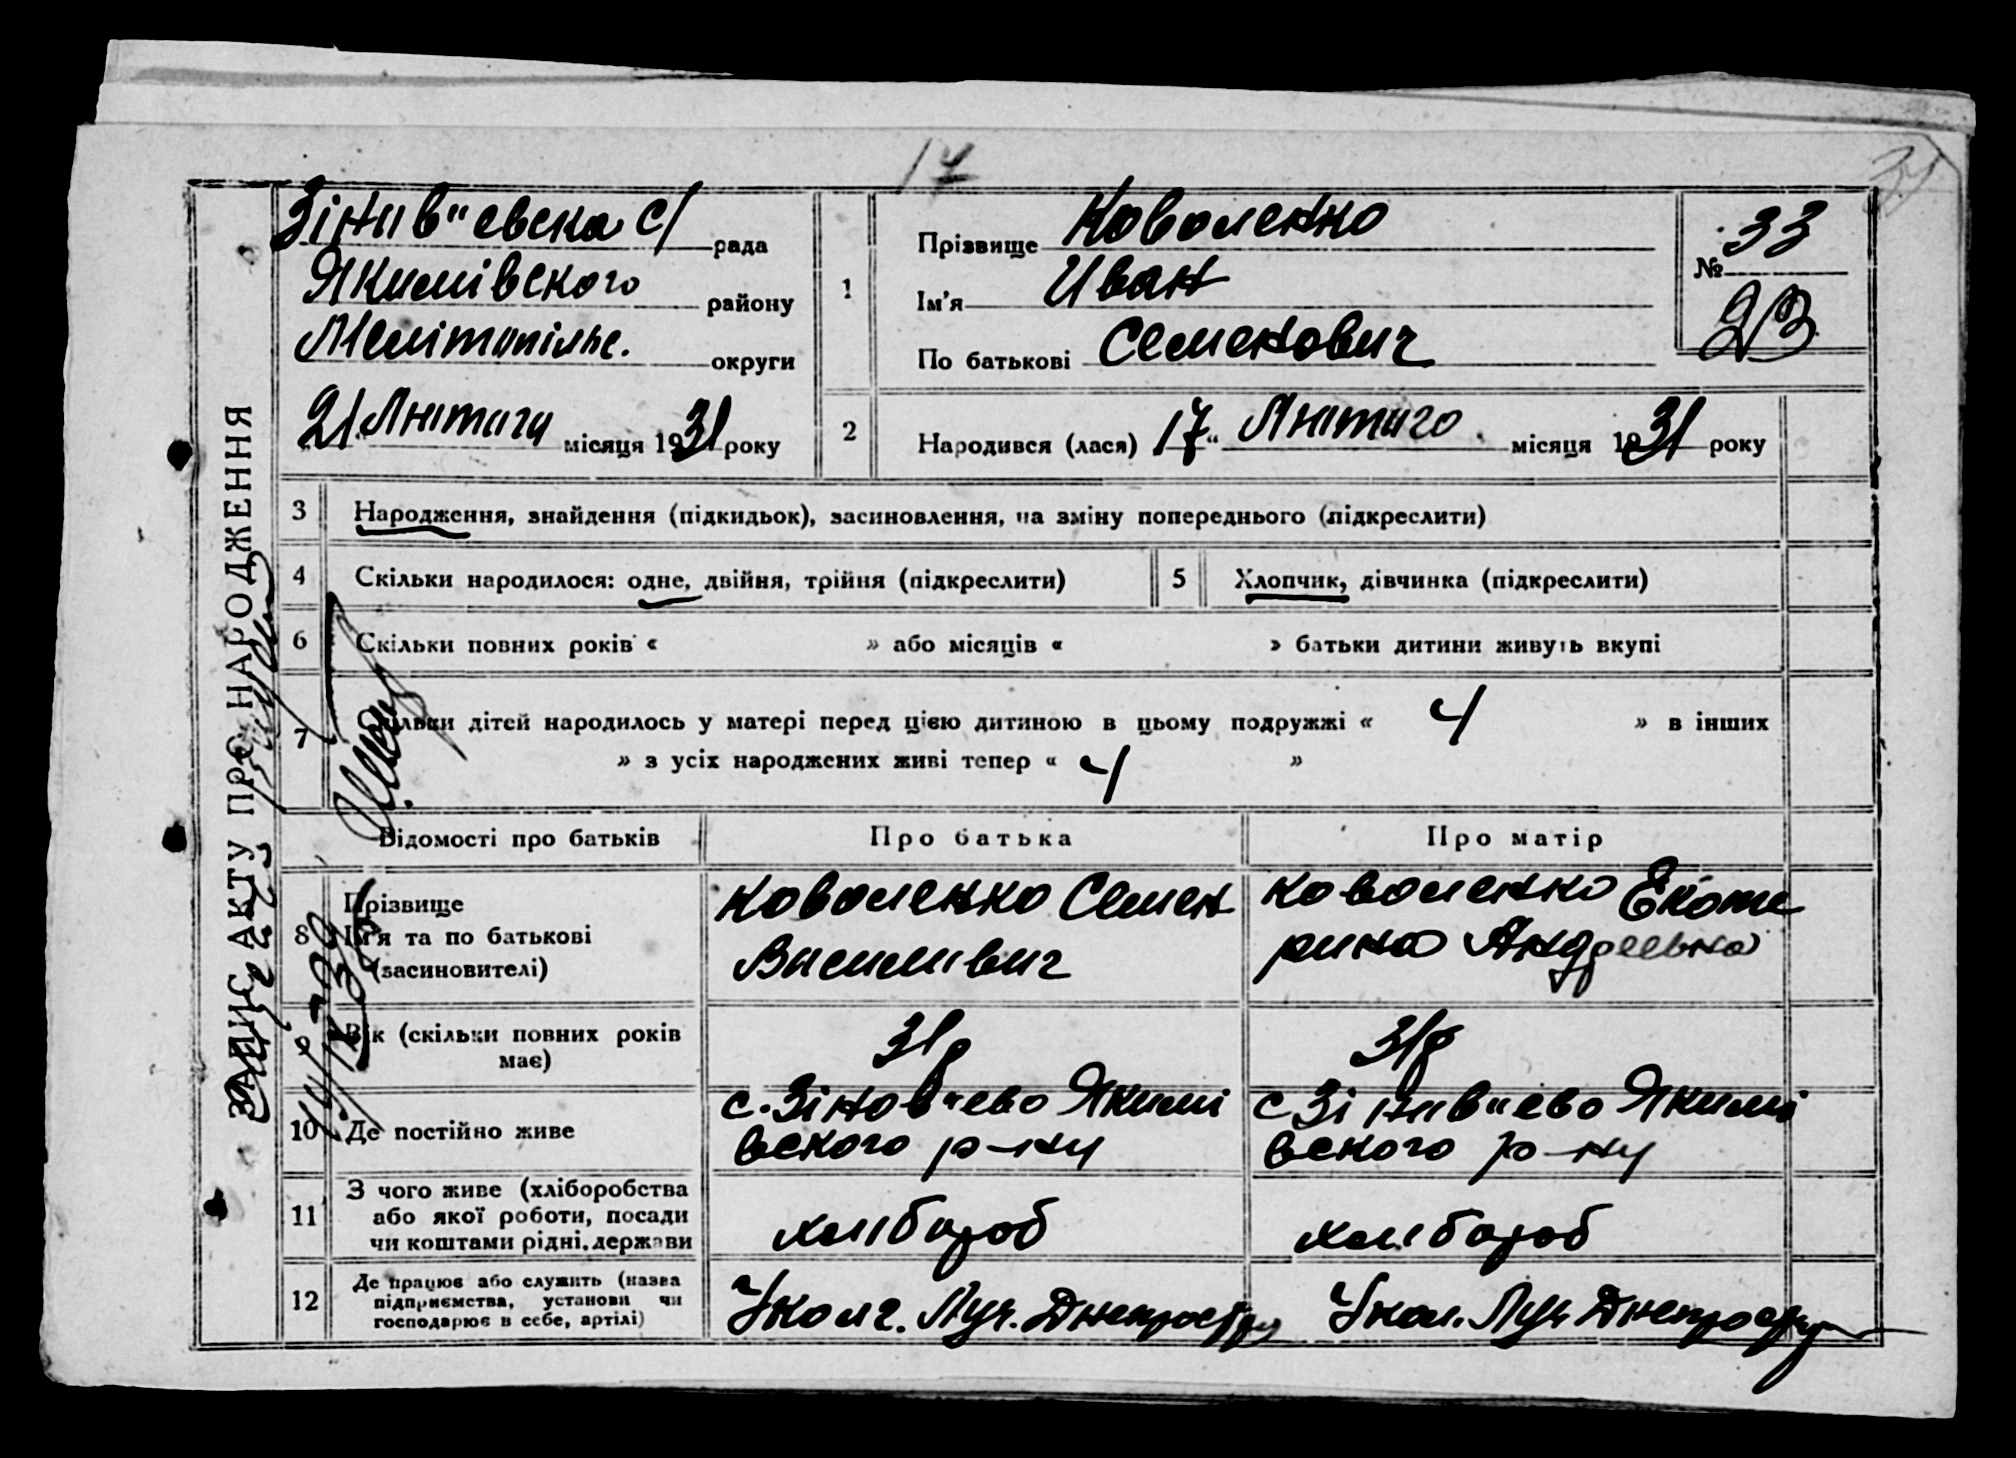 17
Зінов"евська с/ рада
Якимівского району
Мелітопільс. округи
21 Лютого місяця 1931 року
1
Прізвище Коваленко
Ім'я Иван
По батькові Семенович
№ 33
23
2
Народився (лася) 17 " Лютого місяця 1931 року
ЗАПИС АКТУ ПРО НАРОДЖЕННЯ
3 Народження, знайдення (підкидьок), засиновлення, на зміну попереднього (підкреслити)
4 Скільки народилося: одне, двійня, трійня (підкреслити) 5 Хлопчик, дівчинка (підкреслити)
6 Скільки повних років « » або місяців « » батьки дитини живуть вкупі
7 Скільки дітей народилось у матері перед цією дитиною в цьому подружжі « 4 » в інших
» з усіх народжених живі тепер « 4 »
Відомості про батьків Про батька Про матір
8
Прізвище
Ім'я та по батькові
(засиновителі)
Коваленко Семен
Василивич
Коваленко Екате
рина Андреевна
9
Вік (скільки повних років
має)
31 р
31 р
10 Де постійно живе
с. Зінов"ево Якимі
вского р-ну
с Зінов"ево Якимі
вского р-ну
11
З чого живе (хліборобства
або якої роботи, посади
чи коштами рідні, держави
хлибороб
хлибороб
12
Де працює або служить (назва
підприємства, установи чи
господарює в себе, артілі)
У колг. Луч. Днепростру
У кол. Луч Днепростру